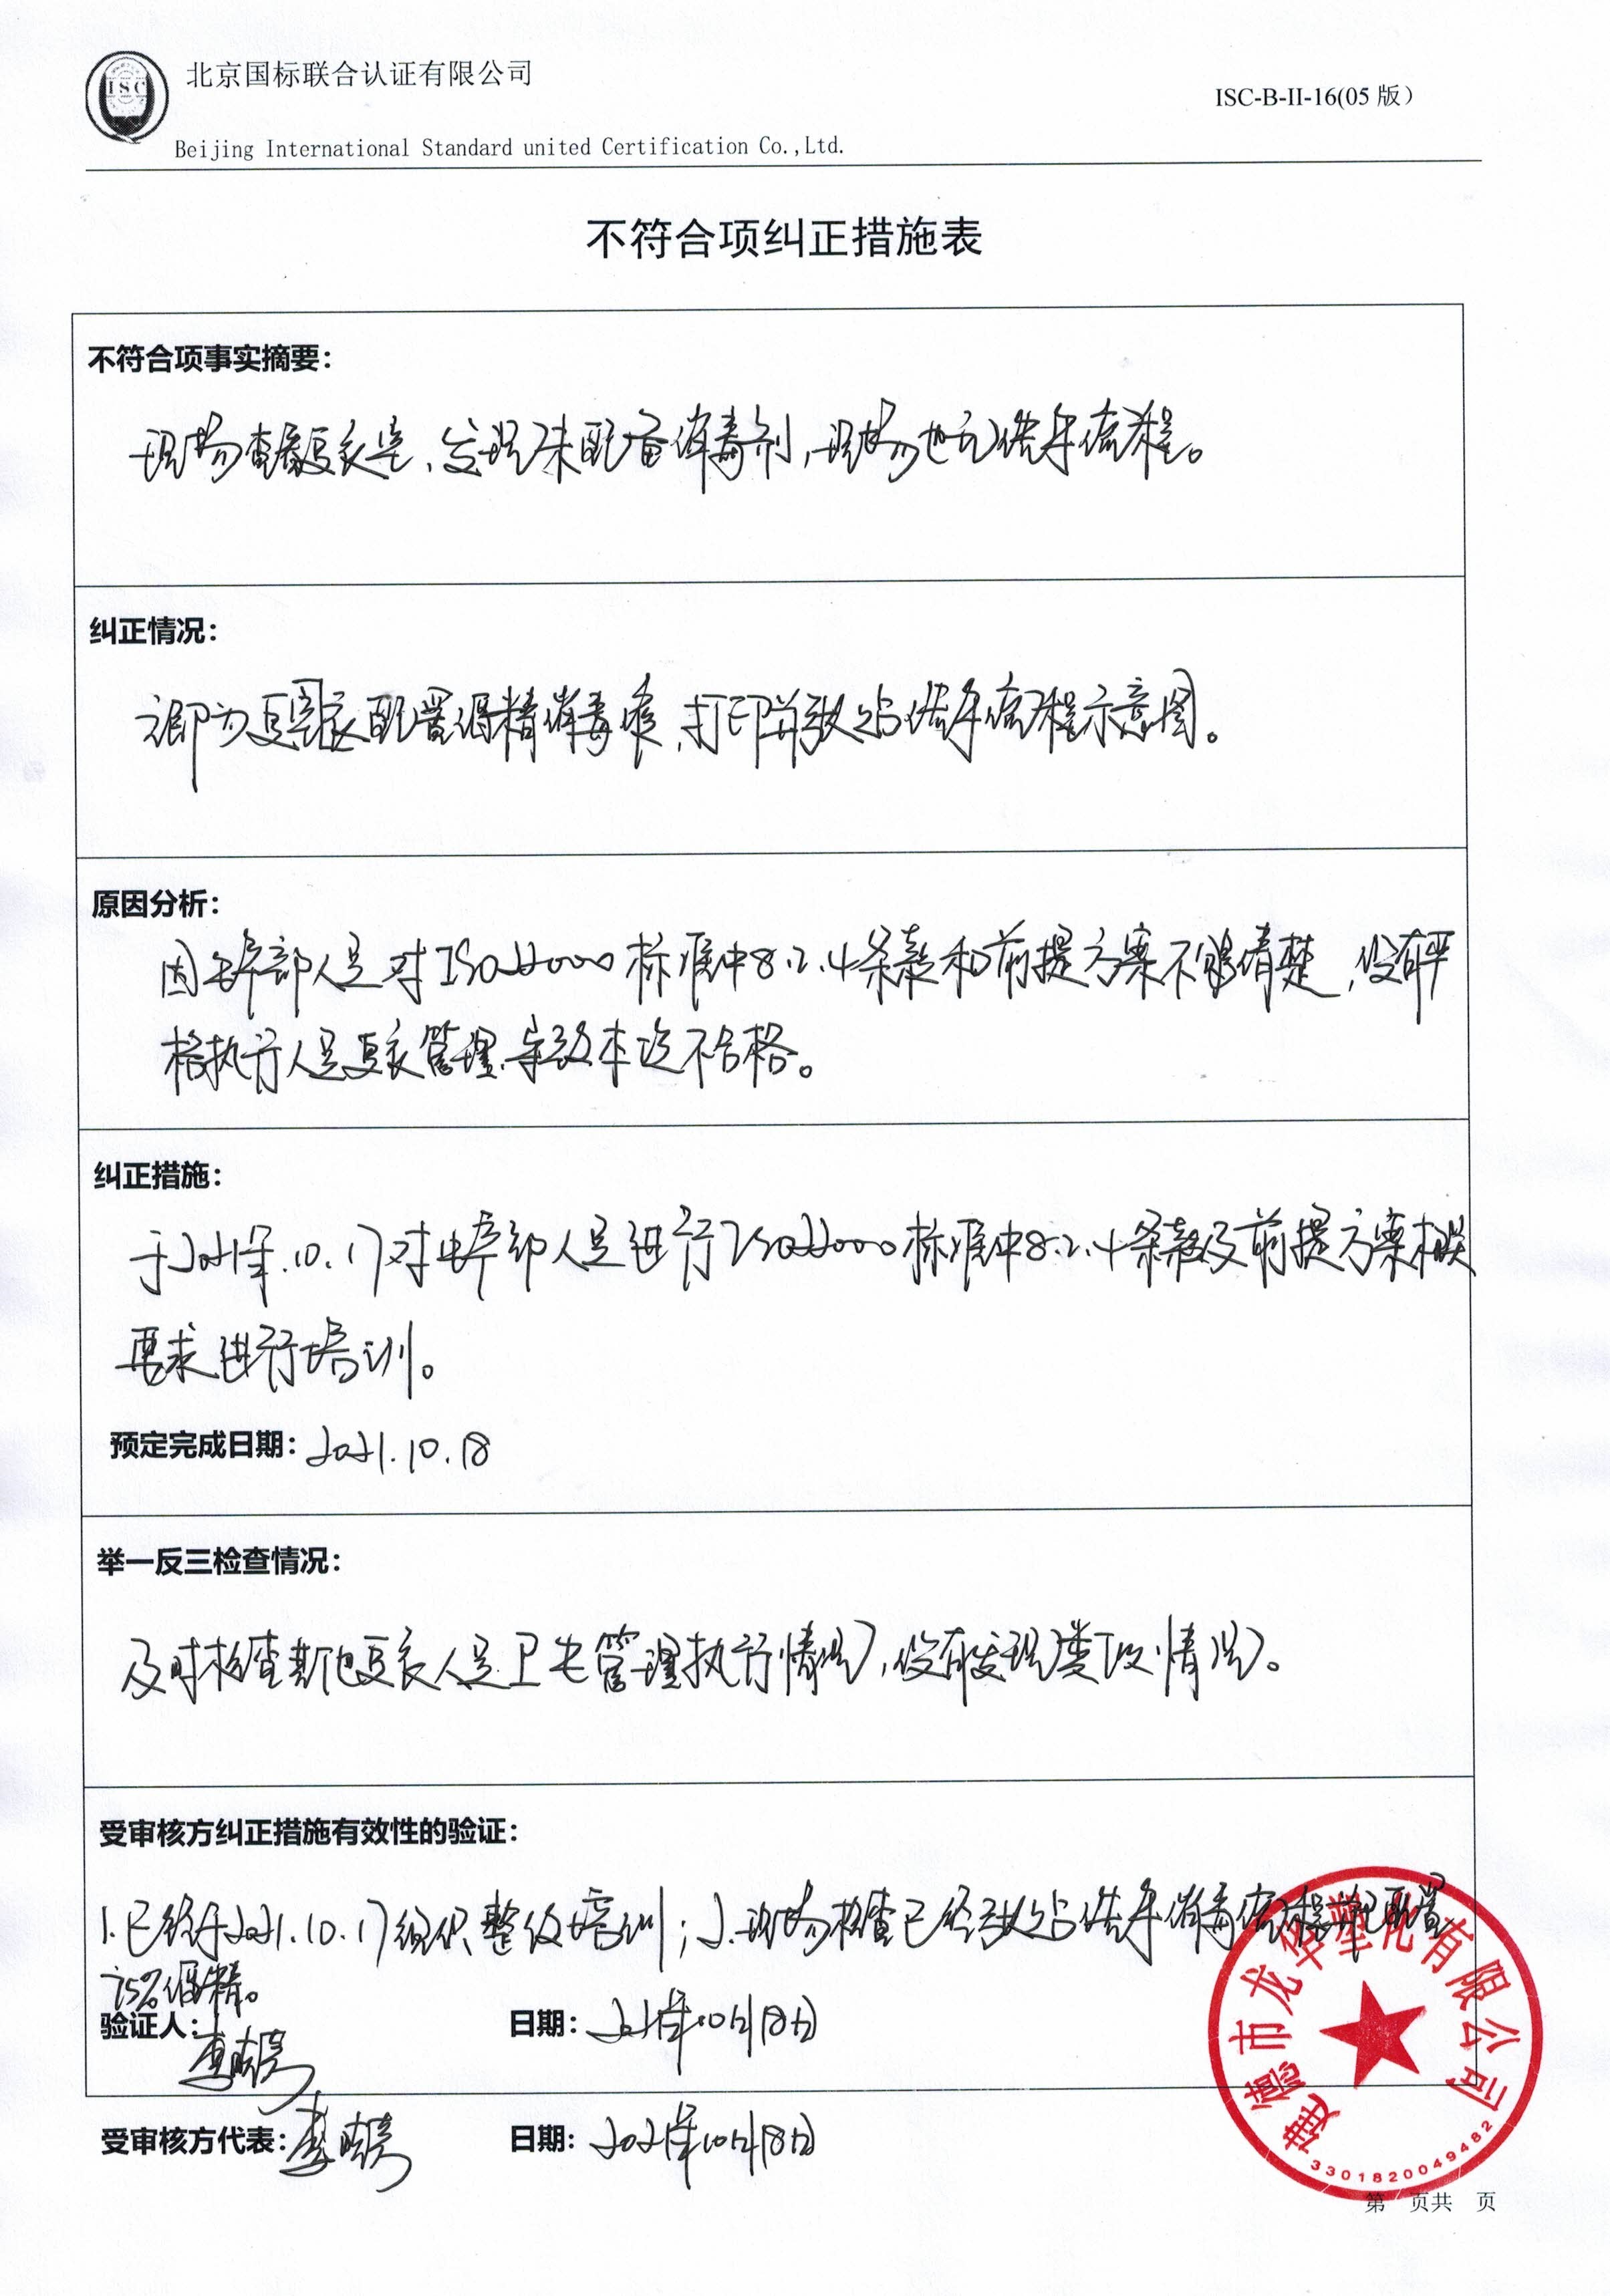 北京国标联合认证有限公司
ISC-B-II-16(05 版)
Beijing International Standard united Certification Co.,Ltd.
不符合项纠正措施表
不符合项事实摘要：
现场查看更衣室，发现未配备消毒剂，现场也无洗手流程。
纠正情况：
立即为更衣配置酒精消毒液，打印并张贴洗手流程示意图。
原因分析：
因生产部人员对ISO22000标准中8.2.4条款和前提方案不够清楚，没有严
格执行人员更衣管理，导致本次不合格。
纠正措施：
于2021年.10.17对生产部人员进行ISO22000标准中8.2.4条款及前提方案相关
要求进行培训。
预定完成日期：2021.10.18
举一反三检查情况：
及时检查其他更衣人员卫生管理执行情况，没有发现类似情况。
受审核方纠正措施有效性的验证：
1.已经于2021.10.17组织整改培训；2.现场检查已经张贴洗手消毒流程并已配置
75%酒精。
验证人：
日期：2021年10月18日
受审核方代表：
日期：2021年10月18日
建德市龙华塑化有限公司
3301820049482
第 页共 页
ISC